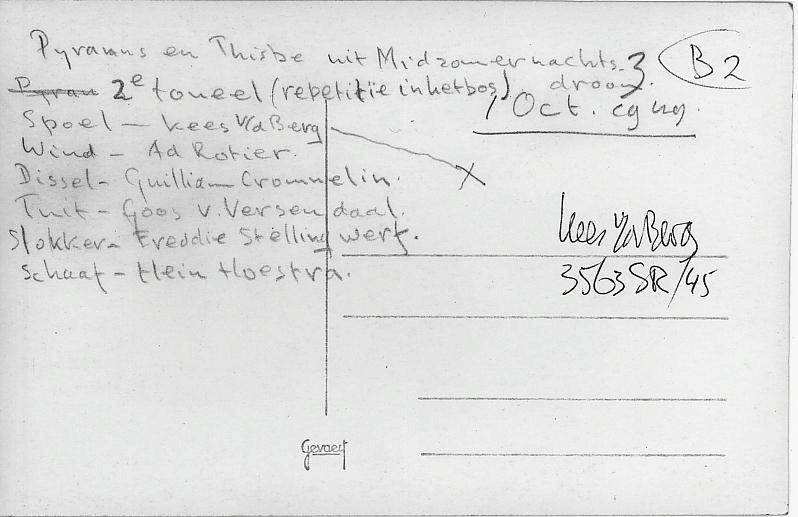 Pyramus en Thisbe uit Midzomernachts-
droom.
B2
Pyram 2e toneel (repetitie in het bos)
1 Oct.
Spoel - Kees v/d Berg
Wind - Ad Rotier.
Dissel - Guilliam Crommelin.
Tuit - Goos v. Versendaal.
Slokker - Freddie Stellingwerf.
Schaaf - Hein Hoestra.
X
Kees v/d Berg
3563 SR/45
Gevaert